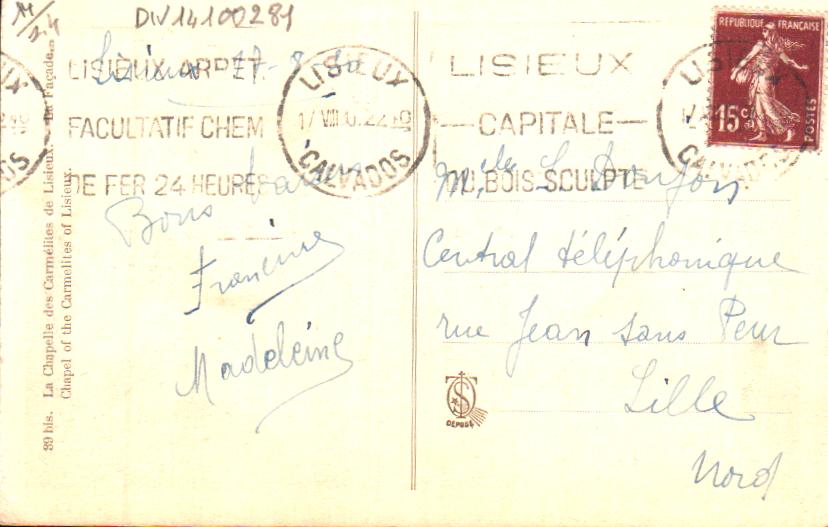 DIV14100281
39 bis. La Chapelle des Carmélites de Lisieux. — La Façade.
Chapel of the Carmelites of Lisieux.
LISIEUX ARRET
FACULTATIF CHEM
DE FER 24 HEURES
LISIEUX
CALVADOS
Lisieux 17-8-
Bons
Francine
Madeleine
LISIEUX
—CAPITALE—
DU BOIS SCULPTE
REPUBLIQUE FRANÇAISE
15c
POSTES
CALVADOS
Central téléphonique
rue Jean sans Peur
Lille
Nord
DEPOSE